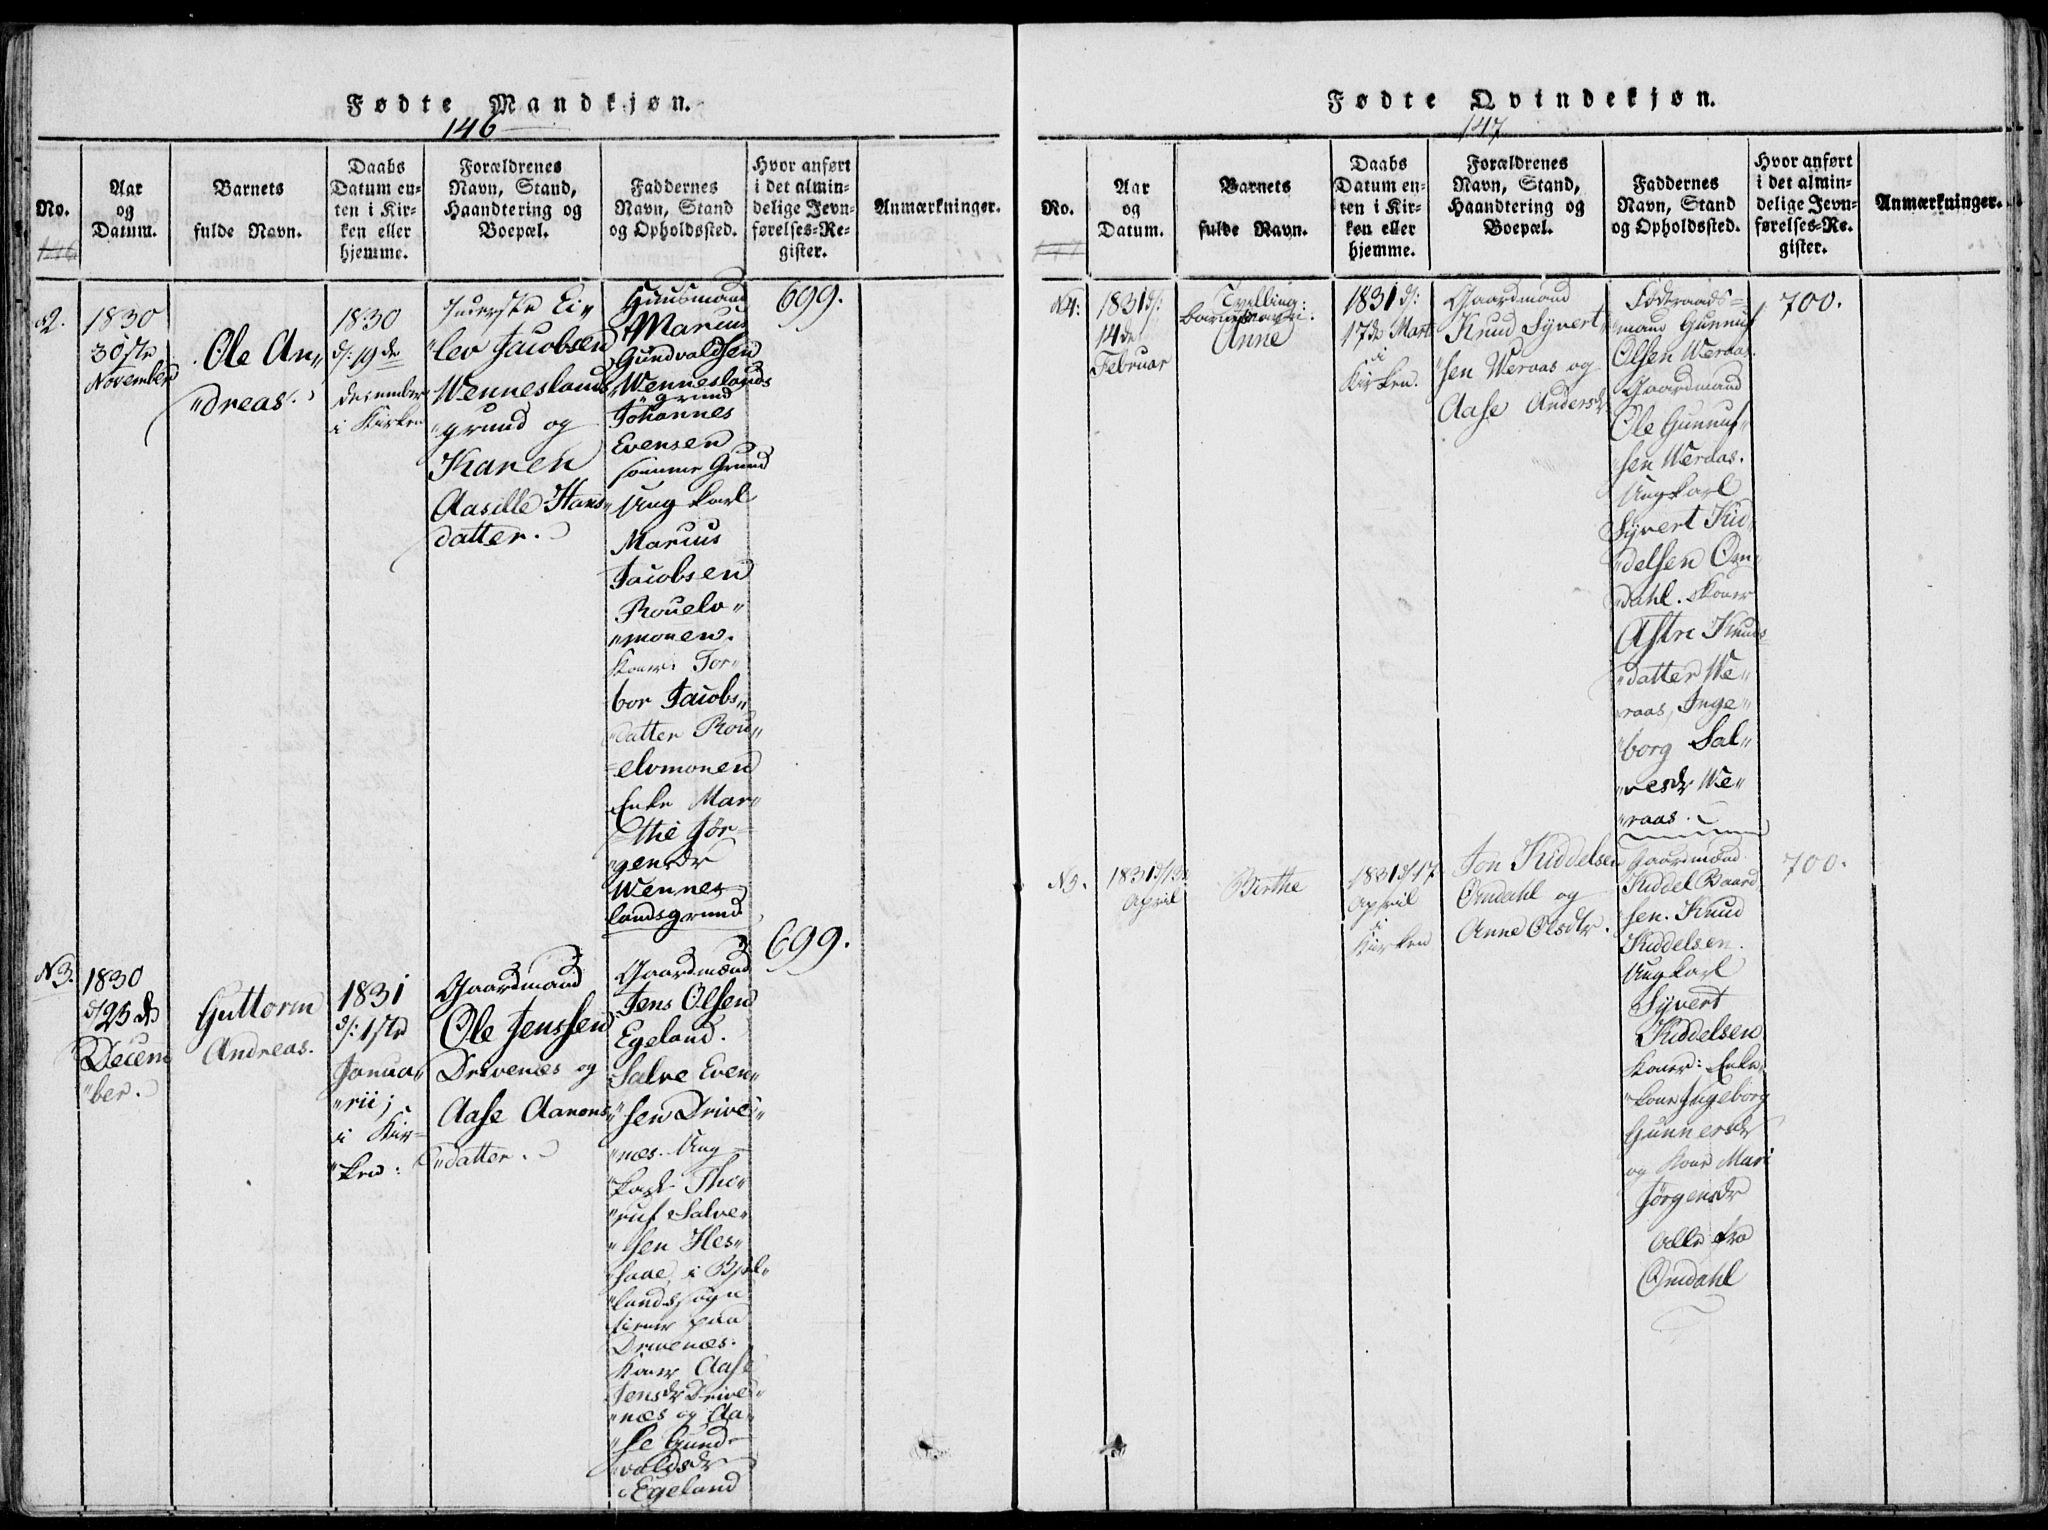 Fødte Mandkjøn.
146
No.
Aar
og
Datum.
Barnets
fulde Navn.
Daabs
Datum en-
ten i Kir-
ken eller
hjemme.
Forældrenes
Navn, Stand,
Haandtering og
Boepæl.
Faddernes
Navn, Stand
og Opholdssted.
Hvor anført
i det almin-
delige Jevn-
førelses-Re-
gister.
Anmærkninger.
146
2.
1830
30ste
November
Ole An„
„dreas.
1830
d: 19de
december
i Kirken
Inderste Ei„
„lev Jacobsen
Wenneslands
„grund og
Karen
Aasille Hans„
datter.
Huusmand
Marcus
Gundvaldsen
Wenneslands
„grund
Johannes
Evensen
samme Grund
Ung karl
Marcus
Jacobsen
Rouelv„
„monen.
Koner: Tor„
bor Jacobs„
„datter Rou„
elvmonen
Enke Mar„
„the Jør„
„gensdr
Wennes
landsgrund
699.
N3.
1830
d 23de
Decem
„ber.
Guttorm
Andreas.
1831
d: 1ste
Janua„
„rii;
i Kir„
„ken:
Gaardmand
Ole Jenssen
Drivenæs og
Aase Aanons„
„datter.
Gaardmænd
Jens Olsen
Egeland.
Salve Even„
„sen Drive„
„næs. Ung
karl Tho„
„ruf Salve„
„sen Hes„
„land i
„landssogn
tiener paa
Drivenæs.
Koner Aase
Jensdr Drive„
„næs og Aa„
„se Gund„
„valdsdr
Egeland
699.
Fødte Qvindekjøn.
147
No.
Aar
og
Datum.
Barnets
fulde Navn.
Daabs
Datum en-
ten i Kir-
ken eller
hjemme.
Forældrenes
Navn, Stand,
Haandtering og
Boepæl.
Faddernes
Navn, Stand
og Opholdssted.
Hvor anført
i det almin-
delige Jevn-
førelses-Re-
gister.
Anmærkninger.
147
N4:
1831 d:
14de
Februar
Tvelling:
Anne
1831 d:
17de Marts
i
Kirken.
Gaardmand
Knud Syvert„
„sen Weraas og
Aase Andersdr
mand Gunnuf
Olsen Weraas.
Gaardmand
Ole Gunnuf„
„sen Weraas.
Ungkarl
Syvert Kid„
„delsen Om„
„dahl. Koner
Astri Knuds
„datter We„
„raas, Inge„
„borg Sal„
„vesdr We„
„raas.
700.
N5.
1831
April
Birthe
1831 d 17
April
i
Kirken
Jon Kiddelsen
Omdahl og
Anne Olsdtr.
Gaardmænd
Kiddel Baard
sen. Knud
Kiddelsen.
Ungkarl
Syvert
Kiddelsen
Koner: Enke
„kone Ingeborg
Gunnersdr
og Kone Mari
Jørgensdr
alle fra
Omdahl
700.